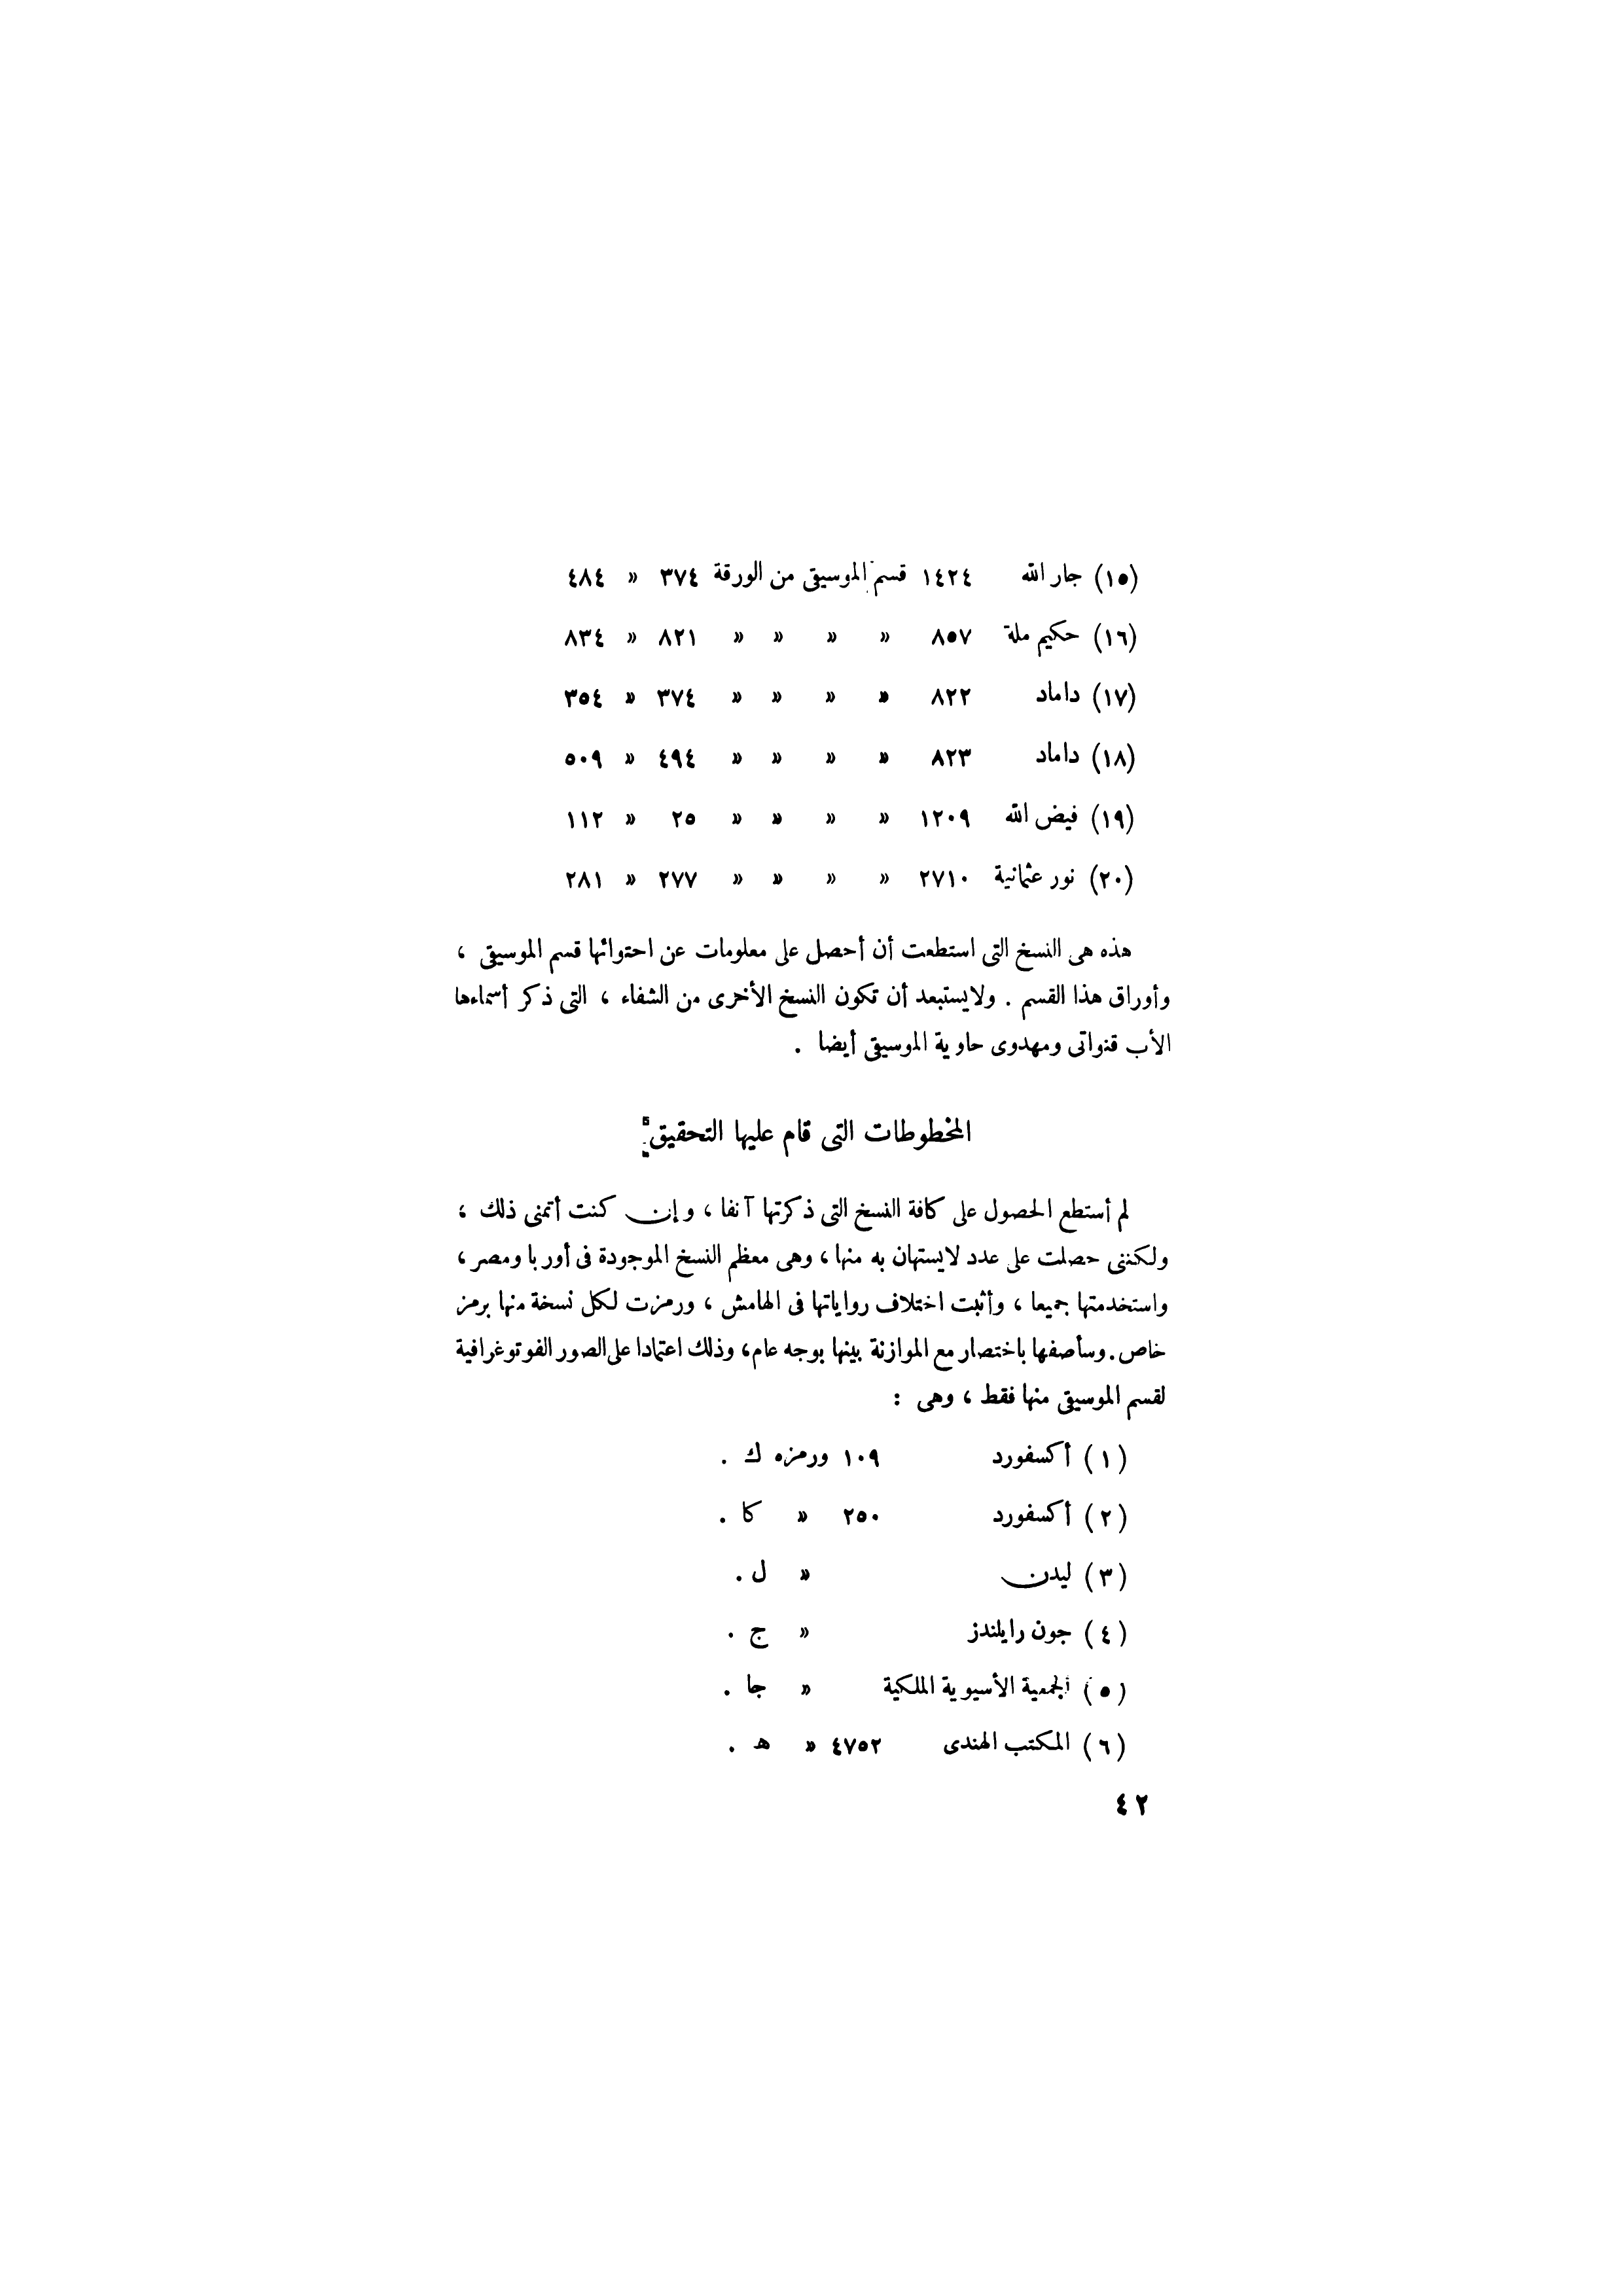 (١٥) جار الله ١٤٢٤ قسم الموسيقى من الورقة ٣٧٤ » ٤٨٤
(١٦) حكيم ملة ٨٥٧ » » » » ٨٢١ » ٨٣٤
(١٧) داماد ٨٢٢ » » » » ٣٧٤ » ٣٥٤
(١٨) داماد ٨٢٣ » » » » ٤٩٤ » ٥٠٩
(١٩) فيض الله ١٢٠٩ » » » » ٢٥ » ١١٢
(٢٠) نور عثمانية ٢٧١٠ » » » » ٢٧٧ » ٢٨١
هذه هى النسخ التى استطعت أن أحصل على معلومات عن احتوائها قسم الموسيقى ،
وأوراق هذا القسم . ولايستبعد أن تكون النسخ الأخرى من الشفاء ، التى ذكر أسماءها
الأب قنواتى ومهدوى حاوية الموسيقى أيضا .
المخطوطات التى قام عليها التحقيق
لم أستطع الحصول على كافة النسخ التى ذكرتها آنفا ، وإن كنت أتمنى ذلك ؛
ولكننى حصلت على عدد لايستهان به منها ، وهى معظم النسخ الموجودة فى أوربا ومصر ،
واستخدمتها جميعا ، وأثبت اختلاف رواياتها فى الهامش ، ورمزت لكل نسخة منها برمز
خاص . وسأصفها باختصار مع الموازنة بينها بوجه عام ، وذلك اعتمادا على الصور الفوتوغرافية
لقسم الموسيقى منها فقط ، وهى :
( ١ ) أكسفورد ١٠٩ ورمزه ك .
( ٢ ) أكسفورد ٢٥٠ » كا .
( ٣ ) ليدن » ل .
( ٤ ) جون رايلندز » ج .
( ٥ ) الجمعية الأسيوية الملكية » جا .
( ٦ ) المكتب الهندى ٤٧٥٢ » هـ .
٤٢